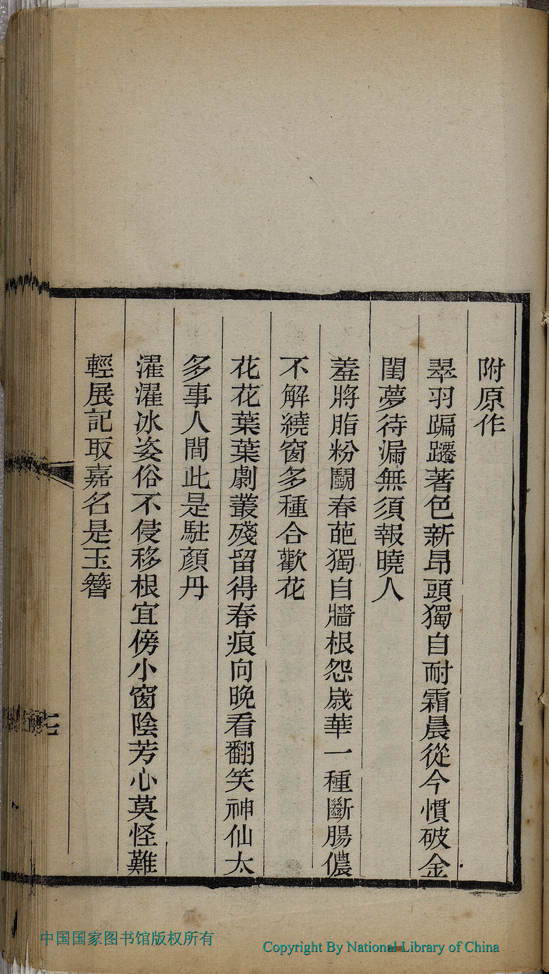 附原作
翠羽蹁躚著色新昂頭獨自耐霜晨從今慣破金
閨夢待漏無須報曉人
羞將脂粉鬭春葩獨自牆根怨歲華一種斷腸儂
不解繞窗多種合歡花
花花葉葉劇叢殘留得春痕向晚看翻笑神仙太
多事人間此是駐顏丹
濯濯冰姿俗不侵移根宜傍小窗陰芳心莫怪難
輕展記取嘉名是玉簪
中国国家图书馆版权所有
Copyright By National Library of China